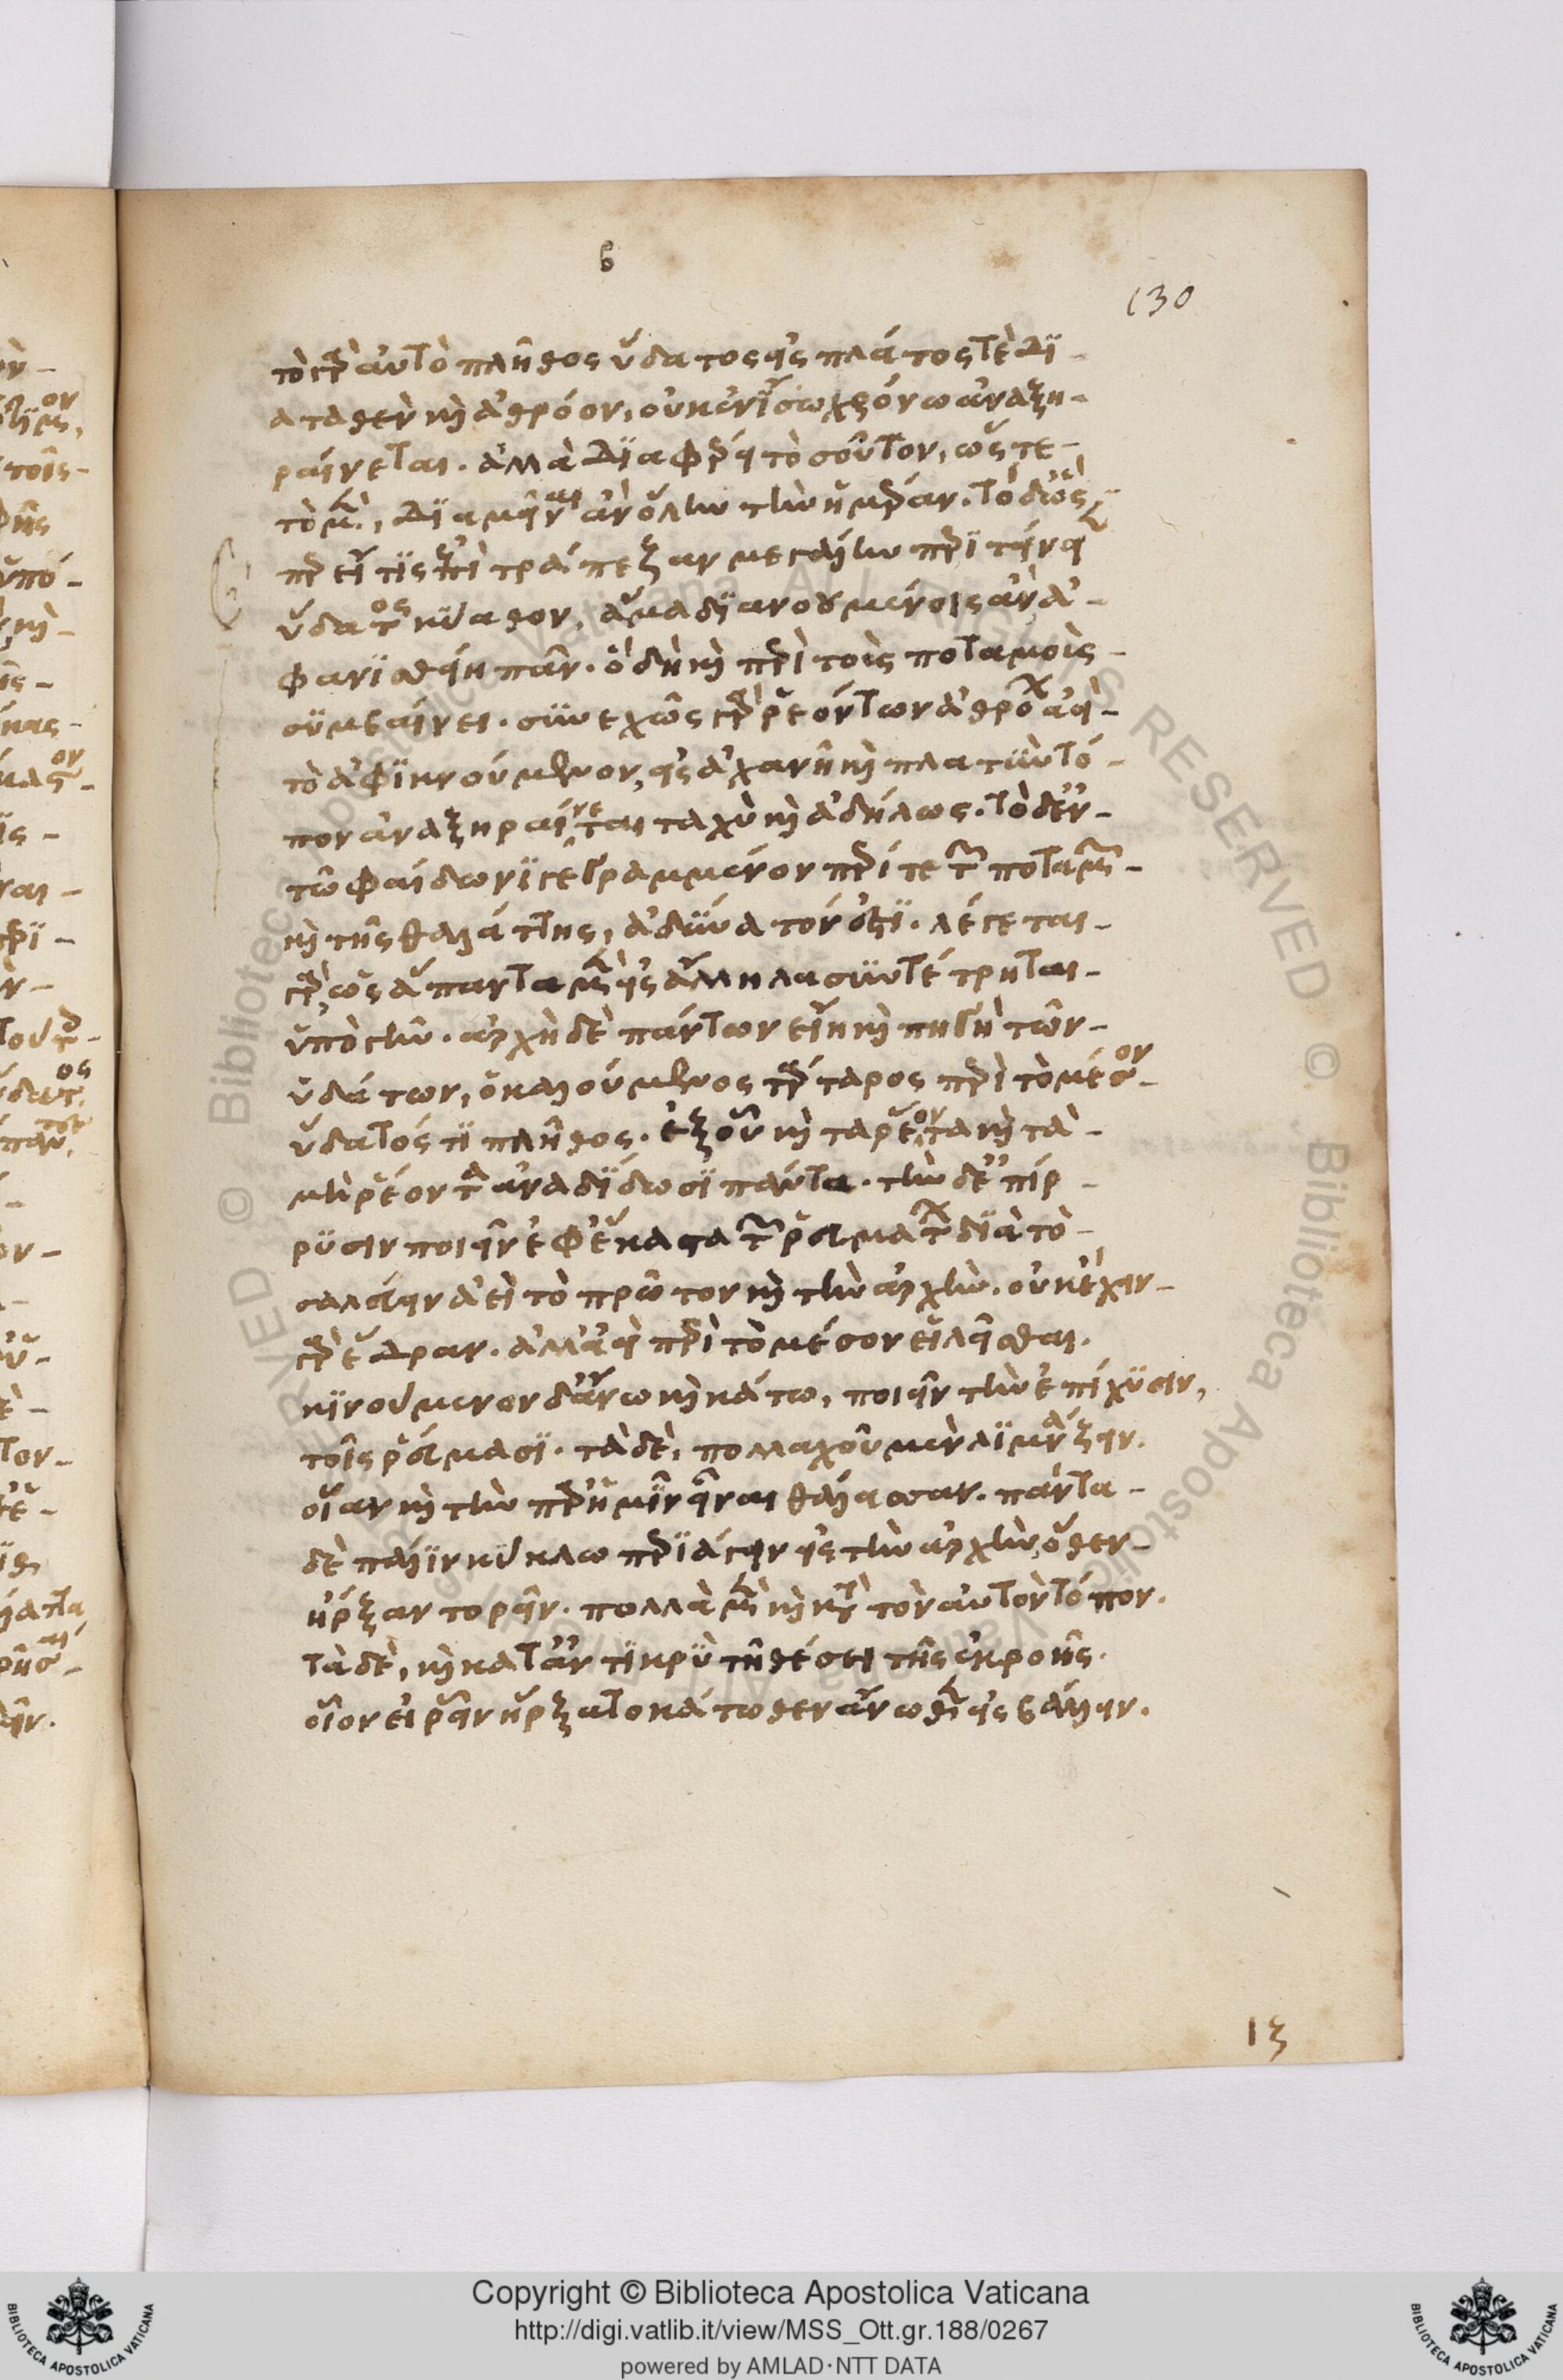 6
130
τὸ γὰρ αὐτὸ πλῆθος ὕδατος εἰς πλάτος τὲ δϊ-
αταθὲν καὶ ἀθρόον, οὐκ ἐν ἴσω χρόνω ἀναξη-
ραίνεται. ἀλλὰ διαφέρει τοσοῦτον, ὥστε-
τὸ μὲν, διαμεῖναι ἂν ὅλην τὴν ἡμέραν. τὸ δ' ὥσ-
περ εἴ τις ἐπὶ τράπεζαν μεγάλην περιτείνειεν
ὕδατος κύαθον, ἅμα διανοουμένοις ἂν ἀ-
φανισθείη πᾶν. ὃ δὴ καὶ περὶ τοὺς ποταμοὺς
συμβαίνει. συνεχῶς γὰρ ῥεόντων ἀθρόων ἀεὶ-
τὸ ἀφικνούμενον, εἰς ἀχανῆ καὶ πλατὺν τό-
πον ἀναξηραίνεται ταχὺ καὶ ἀδήλως. τὸ δ' ἐν-
τῶ φαίδωνι γεγραμμένον περί τε τῶν ποταμῶν-
καὶ τῆς θαλάττης, ἀδύνατόν ἐστι. λέγεται-
γὰρ, ὡς ἅπαντα μὲν εἰς ἄλληλα συντέτρηται-
ὑπὸ γῆν. ἀρχὴ δὲ πάντων εἴη καὶ πηγὴ τῶν-
ὑδάτων, ὁ καλούμενος τάρταρος περὶ τὸ μέσον-
ὕδατός τι πλῆθος. ἐξ οὗ καὶ τὰ ῥέοντα καὶ τὰ-
μὴ ῥέοντα ἀναδίδωσι πάντα. τὴν δ' ἐπίρ-
ρυσιν ποιεῖν ἐφ' ἕκαστα τῶν ῥευμάτων διὰ τὸ-
σαλεύειν ἀεὶ τὸ πρῶτον καὶ τὴν ἀρχήν. οὐκ ἔχειν-
γὰρ ἕδραν. ἀλλ' ἀεὶ περὶ τὸ μέσον εἰλεῖσθαι.
κινούμενον δ' ἄνω καὶ κάτω, ποιεῖν τὴν ἐπίχυσιν,
τοῖς ῥεύμασι. τὰ δὲ, πολλαχοῦ μὲν λιμνάζειν.
οἵαν καὶ τὴν παρ' ἡμῖν εἶναι θάλασσαν. πάντα-
δὲ πάλιν κύκλω περιάγειν εἰς τὴν ἀρχὴν, ὅθεν-
ἤρξαντο ῥεῖν. πολλὰ μὲν καὶ κατὰ τὸν αὐτὸν τόπον.
τὰ δὲ, καὶ καταντικρὺ τῆ θέσει τῆς ἐκροῆς.
οἷον εἰ ῥεῖν ἤρξατο κάτωθεν ἄνωθεν εἰς βάλλειν.
13
Copyright © Biblioteca Apostolica Vaticana
http://digi.vatlib.it/view/MSS_Ott.gr.188/0267
powered by AMLAD·NTT DATA